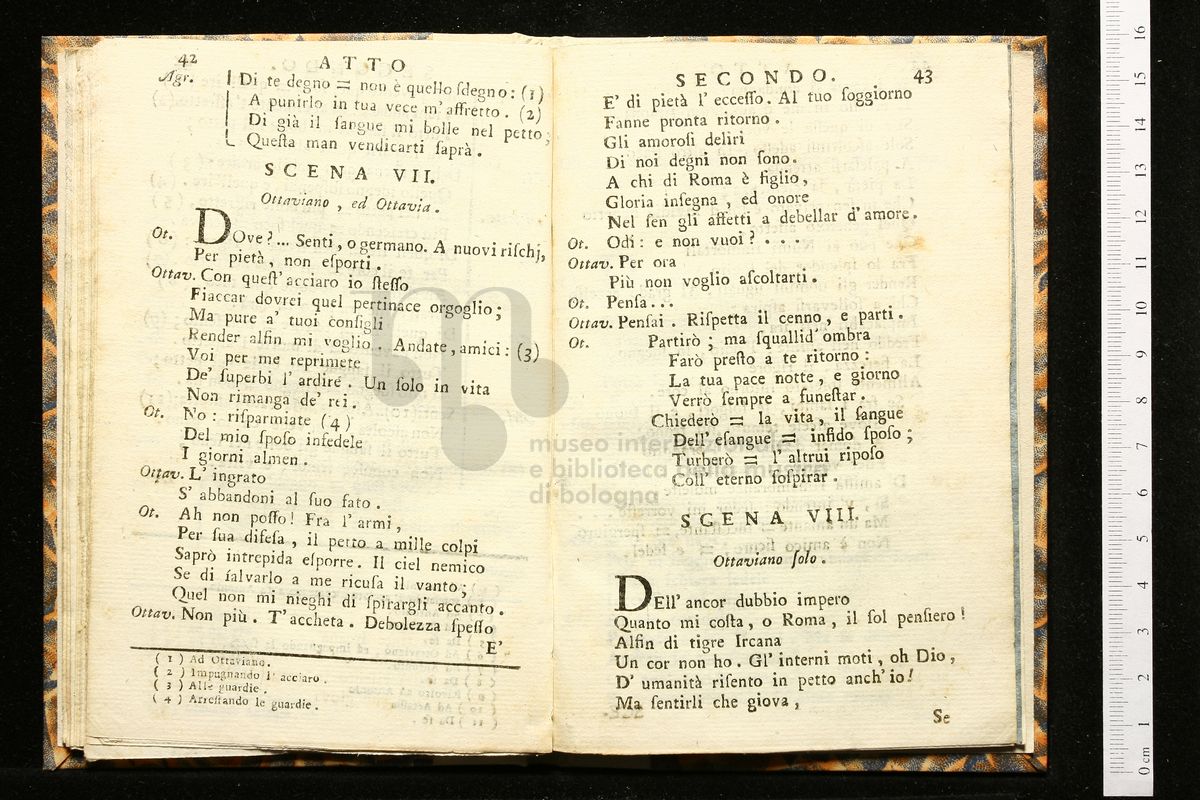 42
ATTO
Agr. Di te degno = non è quello ſdegno: (1)
A punirlo in tua vece m' affretto. (2)
Di già il ſangue mi bolle nel petto;
Queſta man vendicarti ſaprà.
SCENA VII.
Ottaviano, ed Ottavia.
Ot. DOve?... Senti, o germano. A nuovi riſchj,
Per pietà, non eſporti.
Ottav. Con queſt' acciaro io ſteſſo
Fiaccar dovrei quel pertinace orgoglio;
Ma pure a' tuoi conſigli
Render alfin mi voglio. Andate, amici: (3)
Voi per me reprimete
De' ſuperbi l' ardire. Un ſolo in vita
Non rimanga de' rei.
Ot. No: riſparmiate (4)
Del mio ſpoſo infedele
I giorni almen.
Ottav. L' ingrato
S' abbandoni al ſuo fato.
Ot. Ah non poſſo! Fra l' armi,
Per ſua difeſa, il petto a mille colpi
Saprò intrepida eſporre. Il ciel nemico
Se di ſalvarlo a me ricuſa il vanto;
Quel non mi nieghi di ſpirargli accanto.
Ottav. Non più. T' accheta. Debolezza ſpeſſo
E'
(1) Ad Ottaviano.
(2) Impugnando l' acciaro.
(3) Alle guardie.
(4) Arreſtando le guardie.
SECONDO.
43
E' di pietà l' ecceſſo. Al tuo ſoggiorno
Fanne pronta ritorno.
Gli amoroſi deliri
Di noi degni non ſono.
A chi di Roma è figlio,
Gloria inſegna, ed onore
Nel ſen gli affetti a debellar d' amore.
Ot. Odi: e non vuoi? . . .
Ottav. Per ora
Più non voglio aſcoltarti.
Ot. Penſa...
Ottav. Penſai. Riſpetta il cenno, e parti.
Ot. Partirò; ma ſquallid' ombra
Farò preſto a te ritorno:
La tua pace notte, e giorno
Verrò ſempre a funeſtar.
Chiederò = la vita, il ſangue
Dell' eſangue = infido ſpoſo;
Turberò = l' altrui ripoſo
Coll' eterno ſoſpirar.
SCENA VIII.
Ottaviano ſolo.
DEll' ancor dubbio impero
Quanto mi coſta, o Roma, il ſol penſiero!
Alfin di tigre Ircana
Un cor non ho. Gl' interni moti, oh Dio,
D' umanità riſento in petto anch' io!
Ma ſentirli che giova,
Se
museo internazionale
e biblioteca della musica
di bologna
0 cm 1 2 3 4 5 6 7 8 9 10 11 12 13 14 15 16